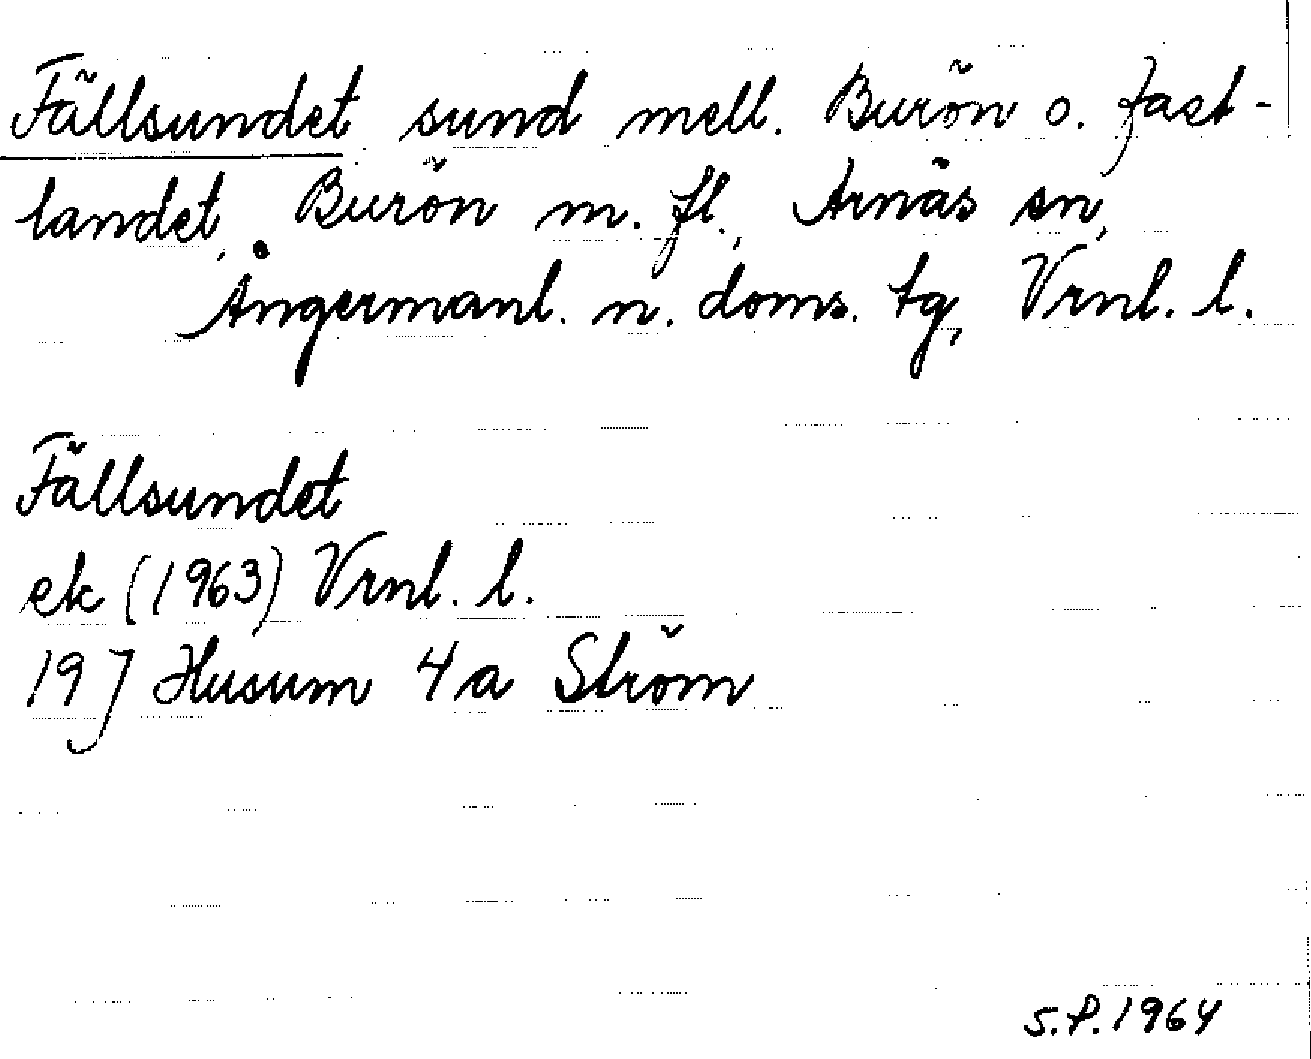 Fällsundet sund mell. Burön o. fast-
landet, Burön m. fl., Arnäs sn,
Ångermanl. n. doms. tg, Vrnl. l.
Fällsundet
ek (1963) Vrnl. l.
19 J Husum 4a Ström
S.P. 1964